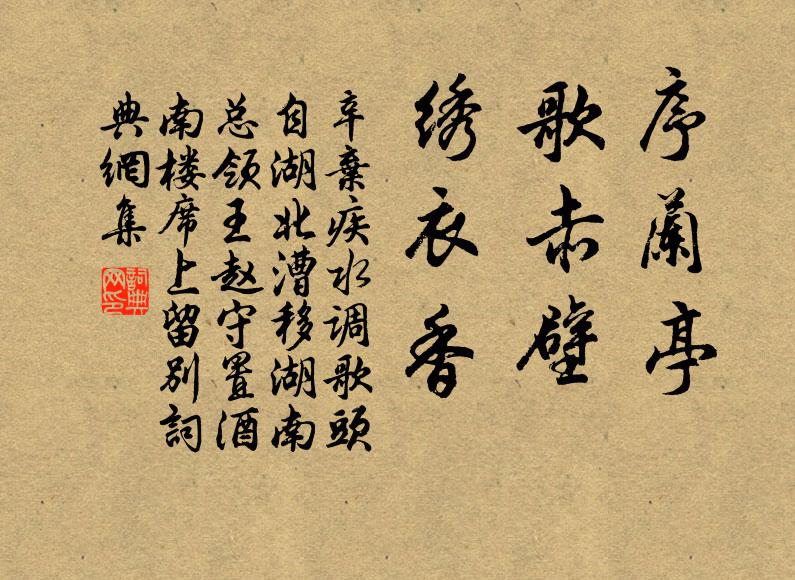 序兰亭
歌赤壁
绣衣香
辛棄疾水调歌頭
自湖北漕移湖南
总领王赵守置酒
南楼席上留别詞
典網集
詞典網印